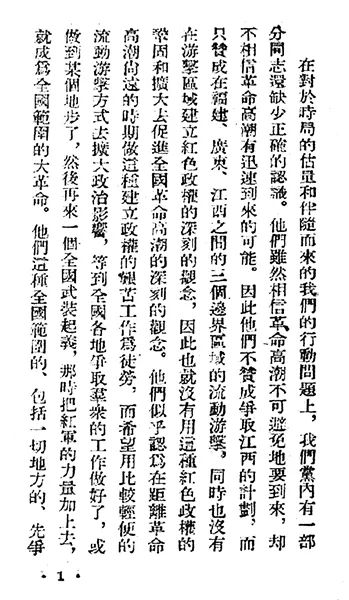 在對於時局的估量和伴隨而來的我們的行動問題上，我們黨內有一部
分同志還缺少正確的認識。他們雖然相信革命高潮不可避免地要到來，却
不相信革命高潮有迅速到來的可能。因此他們不贊成爭取江西的計劃，而
只贊成在福建、廣東、江西之間的三個邊界區域的流動游擊，同時也沒有
在游擊區域建立紅色政權的深刻的觀念，因此也就沒有用這種紅色政權的
鞏固和擴大去促進全國革命高潮的深刻的觀念。他們似乎認爲在距離革命
高潮尚遠的時期做這種建立政權的艱苦工作爲徒勞，而希望用比較輕便的
流動游擊方式去擴大政治影響，等到全國各地爭取羣衆的工作做好了，或
做到某個地步了，然後再來一個全國武裝起義，那時把紅軍的力量加上去，
就成爲全國範圍的大革命。他們這種全國範圍的、包括一切地方的、先爭
· 1 ·